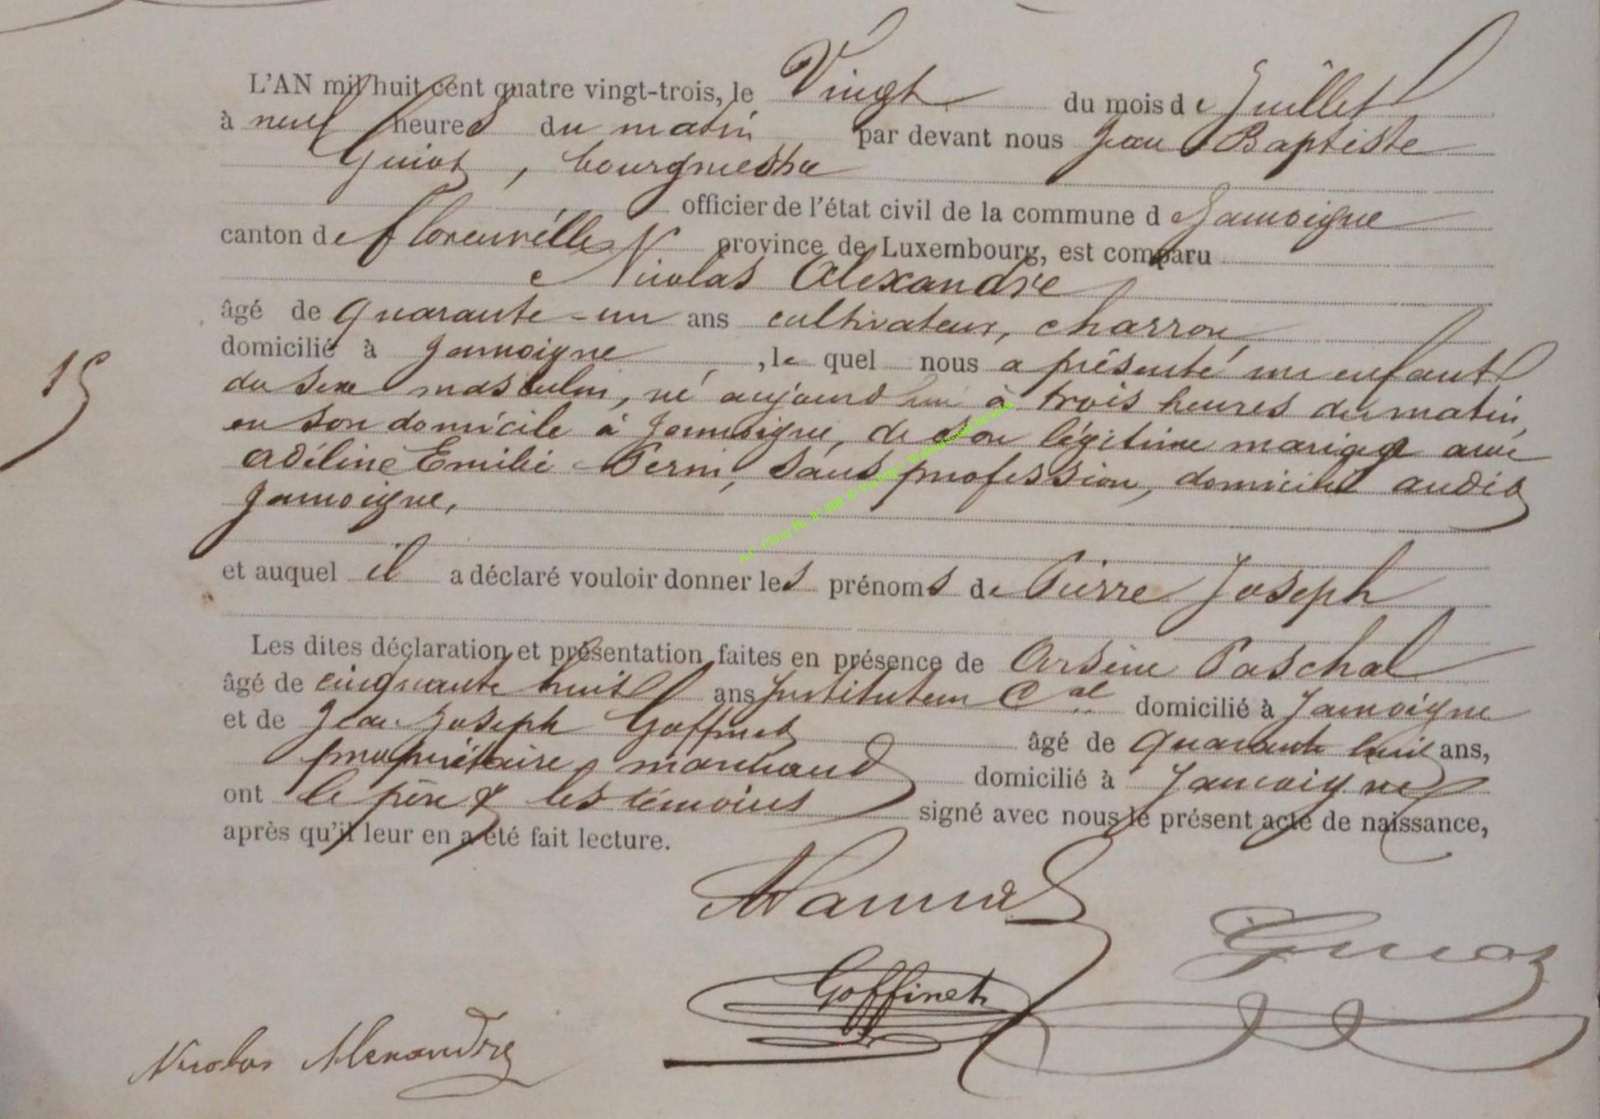 L'AN mil huit cent quatre vingt-trois, le Vingt du mois de Juillet
à neuf heures du matin par devant nous Jean Baptiste
Guiot, bourgmestre
officier de l'état civil de la commune de Jamoigne
canton de Florenville province de Luxembourg, est comparu
Nicolas Alexandre
âgé de quarante-un ans cultivateur, charron,
domicilié à Jamoigne, le quel nous a présenté un enfant
15
du sexe masculin, né aujourd'hui à trois heures du matin,
en son domicile à Jamoigne, de son légitime mariage avec
Adéline Emilie Perin, sans profession, domiciliée audit
Jamoigne,
et auquel il a déclaré vouloir donner les prénoms de Pierre Joseph
Les dites déclaration et présentation faites en présence de Arsène Paschal
âgé de cinquante huit ans Instituteur Cal domicilié à Jamoigne
et de Jean Joseph Goffinet âgé de quarante huit ans,
propriétaire, marchand domicilié à Jamoigne
ont le père & les témoins signé avec nous le présent acte de naissance,
après qu'il leur en a été fait lecture.
Guiot
Goffinet
Nicolas Alexandre